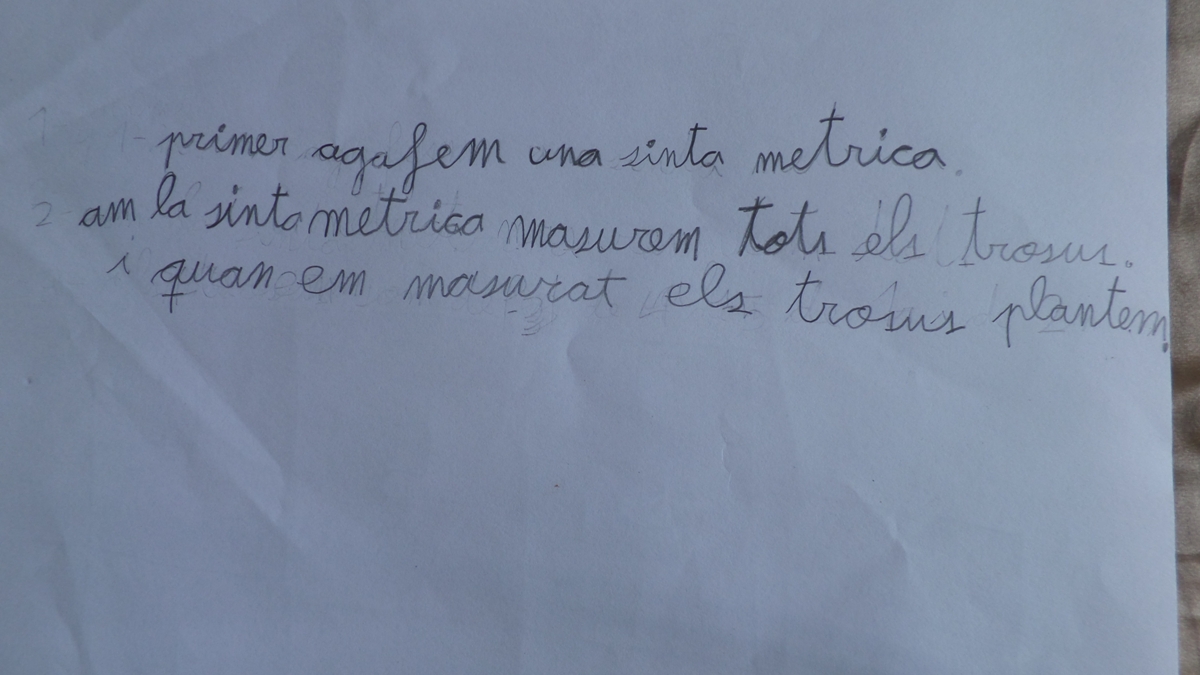 1- primer agafem una sinta metrica.
2- am la sinta metrica masurem tots els trosus.
i quan em masurat els trosus plantem.